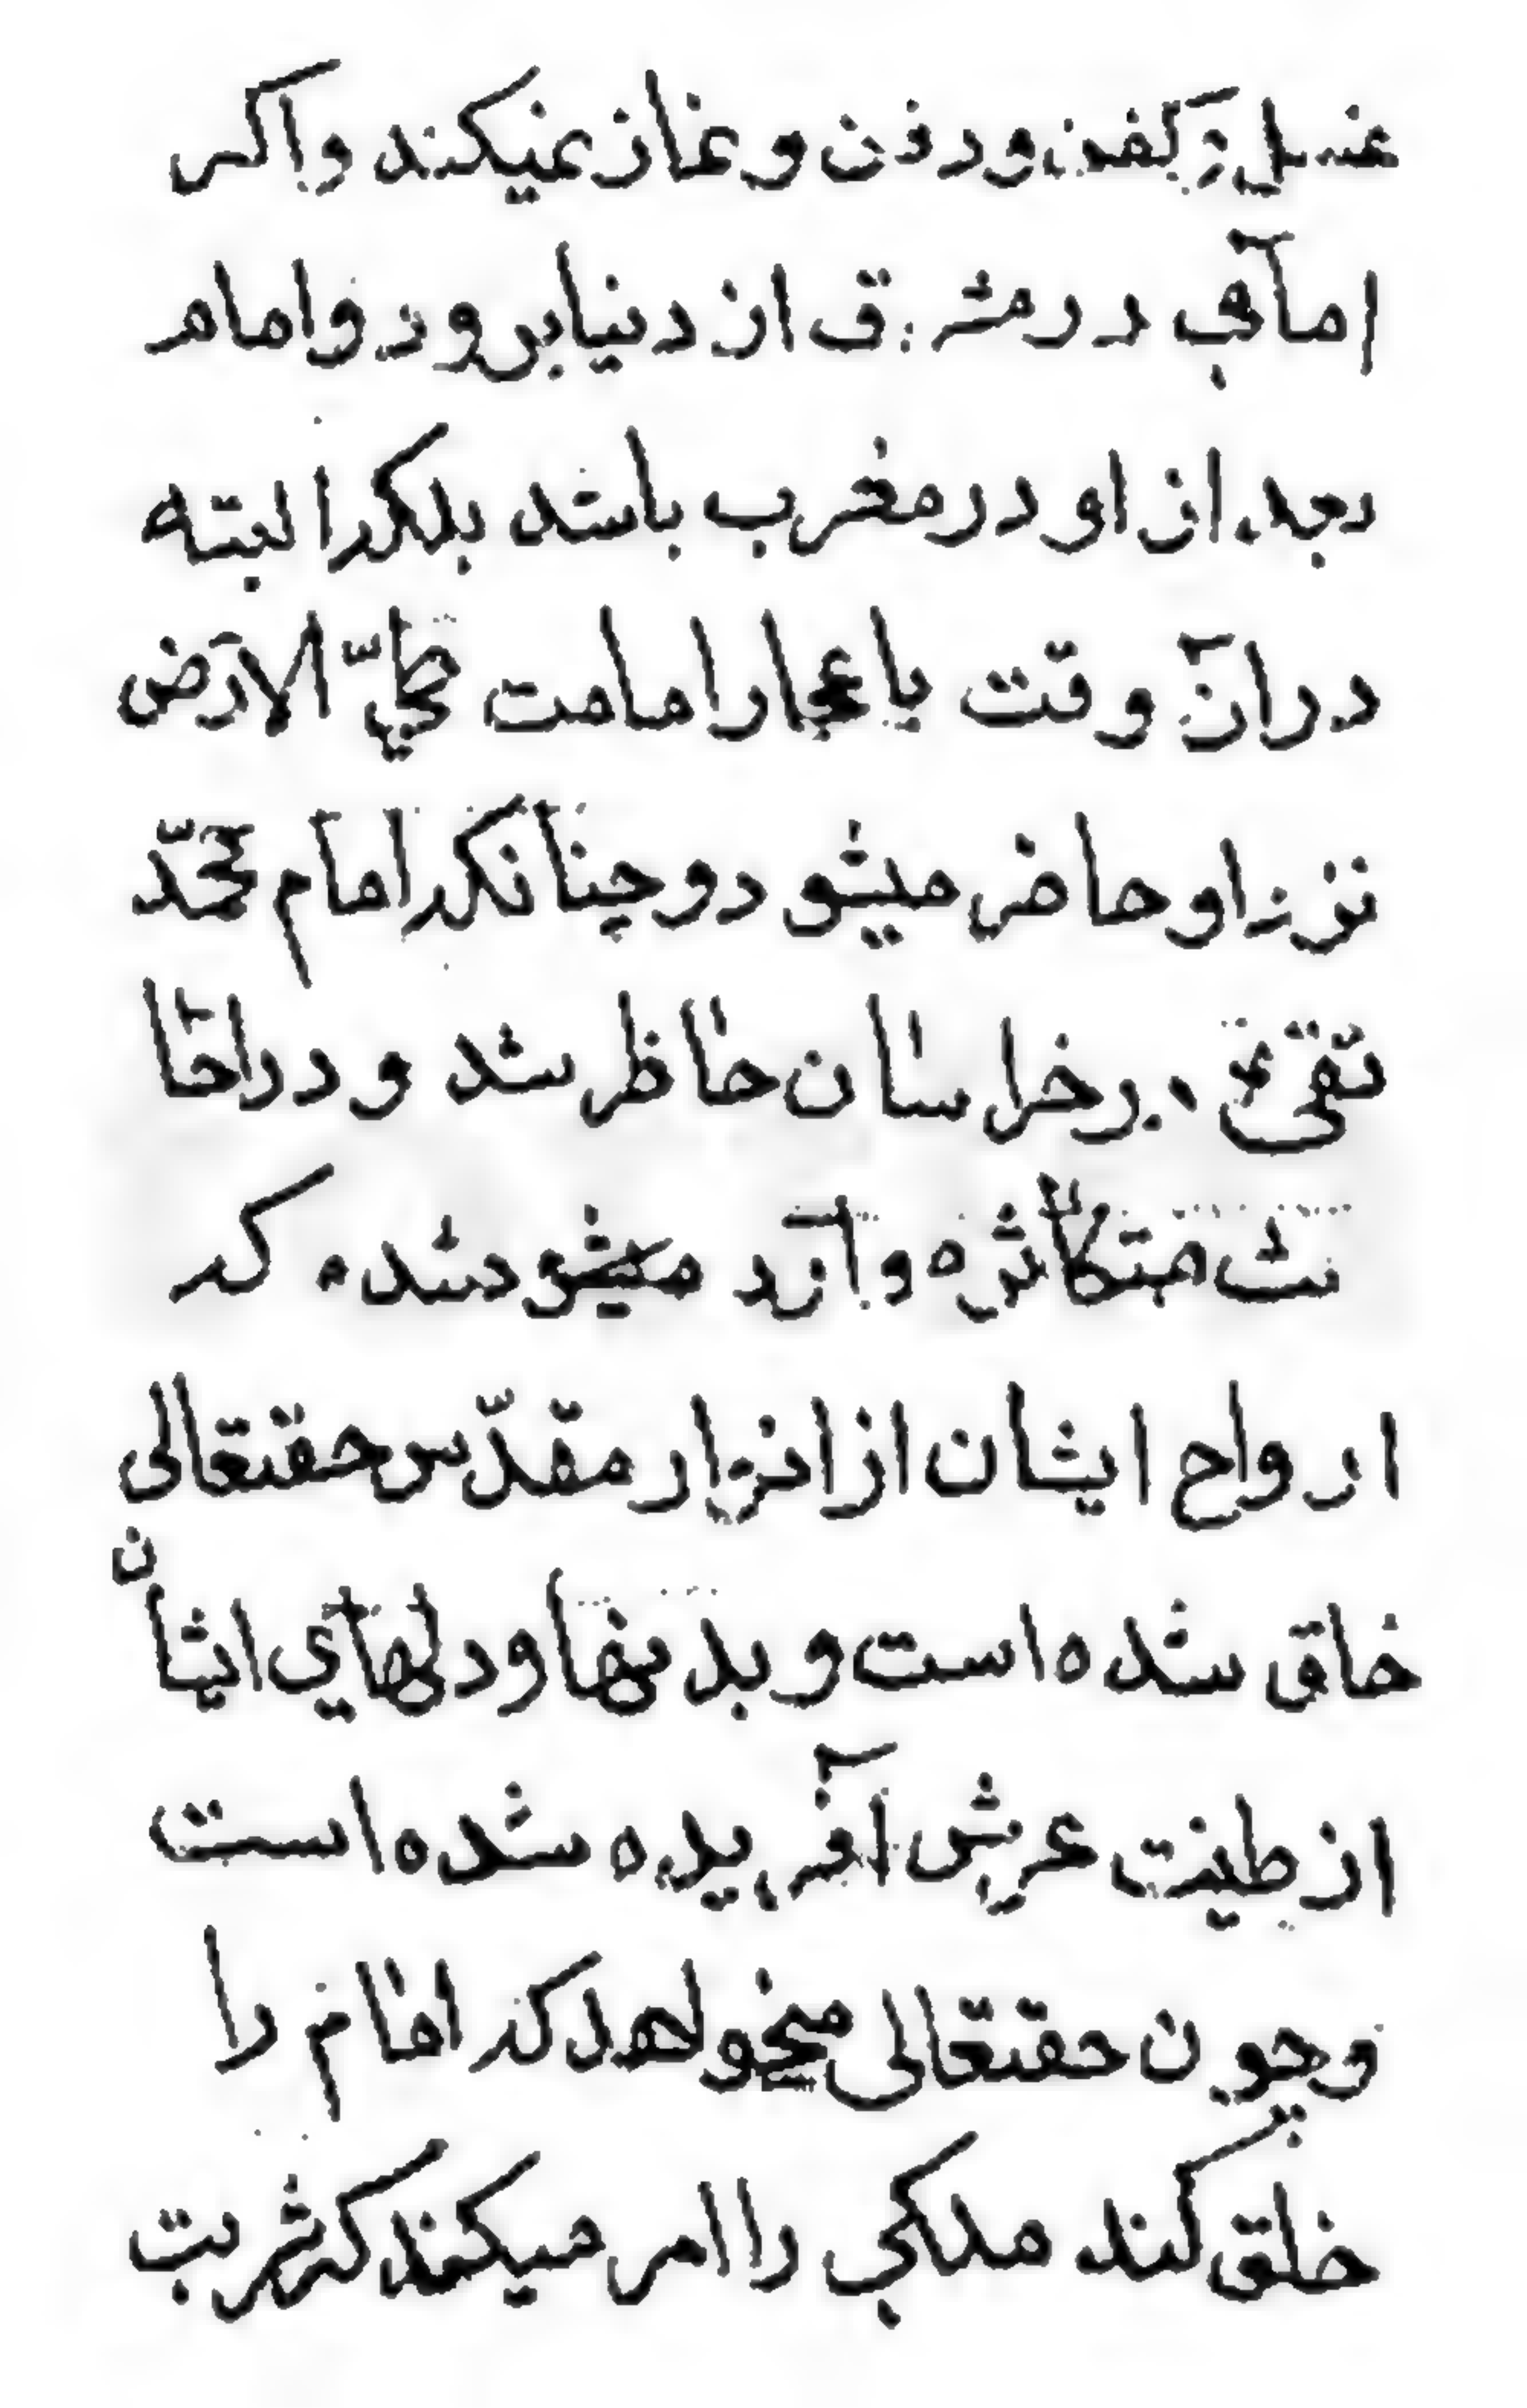 غسل و کفن و دفن و نماز نمیکند و اکر
امامی در مشرق از دنیا برود و امام
بعد از او در مغرب باشد بلکه البته
در آن وقت باعجاز امامت بطیّ الارض
نزد او حاضر میشود و چنانکه امام محمّد
تقی ع در خراسان حاظر شد و در احا
یث متکاثره وارد میشود شده که
ارواح ایشان از انوار مقدّس حقتعالی
خلق شده است و بدنها و دلهای ایشان
از طینت عرش آفریده شده است
و چون حقتعالی میخواهد که امام را
خلق کند ملکی را امر میکند که شربت